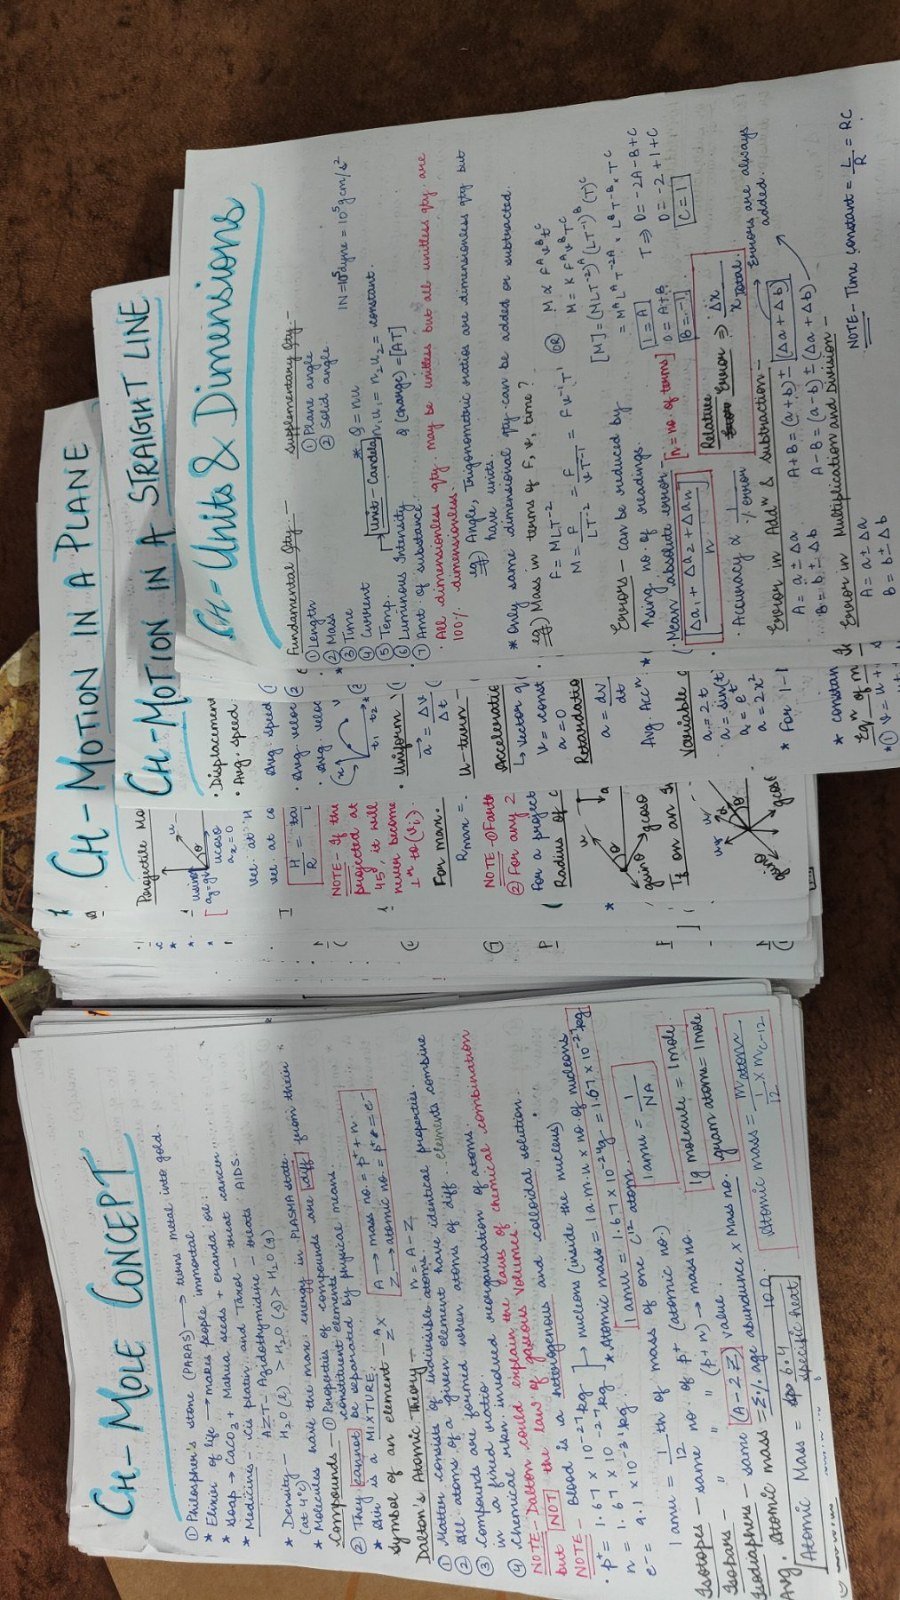 CH - MOLE CONCEPT
① Philospher's stone (PARAS) → turns metal into gold.
★ Elixir of life → makes people immortal
★ Soap → CaCO2 + Mahua seeds + eranda oil.
★ Medicines - cis platin and Taxol - treat cancer
AZT - Azidothymidine - treats AIDS.
★ Density - H2O (l) > H2O (s) > H2O (g)
(at 4°C)
★ Molecules have the max. energy in PLASMA state.
Compounds - ① Properties of compounds are diff from their
constituent elements
② They cannot be separated by physical means.
★ Air is a MIXTURE.
Symbol of an element - A Z X
A → mass no. = p+ + n
Z → atomic no. = p+ = e-
n = A - Z
Dalton's Atomic Theory -
① Matter consists of indivisible atoms.
② All atoms of a given element have identical properties.
③ Compounds are formed when atoms of diff elements combine
in a fixed ratio.
④ Chemical rxn involved reorganisation of atoms.
NOTE - Dalton could explain the laws of chemical combination
but NOT the law of gaseous volumes.
NOTE - Blood is a heterogenous and colloidal solution.
p+ = 1.67 × 10-27 kg
n = 1.67 × 10-27 kg
nucleons (inside the nucleus)
e- = 9.1 × 10-31 kg
★ Atomic mass = 1 a.m.u × no of nucleons
1 amu = 1.67 × 10-24 g = 1.67 × 10-27 kg
1 amu = 1/12 th of mass of one C12 atom.
1 amu = 1/NA
Isotopes - same no. of p+ (atomic no.)
Isobars - " " " (p+ + n) → mass no.
Isodiaphers - same (A - 2Z) value.
1g molecule = 1 mole
1 gram atom = 1 mole
Avg. atomic mass = Σ % age abundance × Mass no. / 100
Atomic Mass = 6.4 / specific heat
Atomic mass = m atom / 1/12 × mC-12
CH - MOTION IN A PLANE
Projectile Mo
u
ucosθ
ax = 0
H/R = ta
NOTE - If the
projected at
45°, it will
never become
⊥r to (vi)
For max.
Rmax =
② For any 2
For a project
Radius of c
gcosθ
gsinθ
CH - MOTION IN A STRAIGHT LINE
• Displacement
• Avg. speed
Avg speed
• Avg veloc
• Avg veloc
Uniform
a = Δv/Δt
U-turn
Acceleratio
↳ vector q
v = const
a = 0
Retardatio
a = dv/dt
Avg Accn
Variable
a = 2t
a = sin t
a = et
a = 2x2
★ For 1-1
★ constan
Eqn of m
① v = u +
CH - Units & Dimensions
Fundamental Qty. -
① Length
② Mass
③ Time
④ Current
⑤ Temp.
⑥ Luminous Intensity
⑦ Amt of substance
Supplementary Qty -
① Plane angle
② Solid angle
Unit - Candela
★ Q = nu
n1u1 = n2u2 = constant.
1N = 10^5 dyne = 10^5 g cm/s2
Q (charge) = [AT]
• All dimensionless qty. may be unitless but all unitless qty. are
100% dimensionless.
eg) Angle, Trigonometric ratios are dimensionless qty but
have units.
★ Only same dimensional qty can be added or subtracted.
eg) Mass in terms of F, v, time?
F = MLT-2
M = F/LT-2 = F/vT-1 = Fv-1T1
OR
M ∝ FA vB tC
M = K FA vB TC
[M] = (MLT-2)A (LT-1)B (T)C
= MA LA T-2A × LB T-B × TC
1 = A
0 = A + B
B = -1
T ⇒ 0 = -2A - B + C
0 = -2 + 1 + C
C = 1
Errors - can be reduced by
↑sing no. of readings.
Mean absolute error - [n = no. of terms]
Δa1 + Δa2 + Δan / n
• Accuracy ∝ 1 / % error
Relative Error ⇒ Δx / x Total
Errors are always
added.
Error in Addn & subtraction -
A = a ± Δa
B = b ± Δb
A + B = (a + b) ± (Δa + Δb)
A - B = (a - b) ± (Δa + Δb)
Error in Multiplication and Division -
A = a ± Δa
B = b ± Δb
NOTE - Time constant = L/R = RC